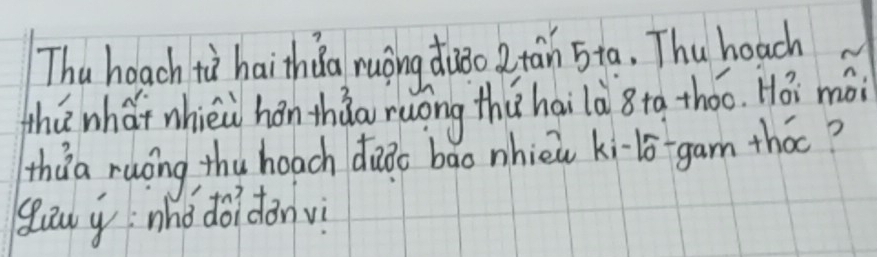 Thu hoạch từ hai thửa ruộng được 2 tấn 5 tạ. Thu hoạch
thứ nhất nhiều hơn thửa ruộng thứ hai là 8 tạ thóc. Hỏi mỗi
thửa ruộng thu hoạch được bao nhiêu ki-lô-gam thóc?
Lưu ý: nhớ đổi đơn vị